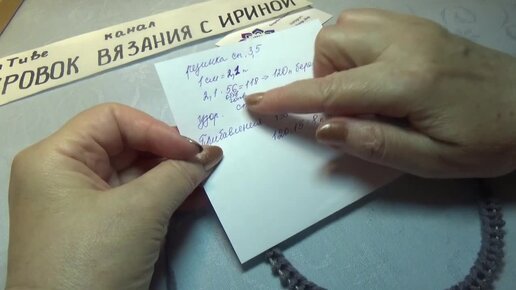 Tube канал
РОВОК ВЯЗАНИЯ С ИРИНОЙ
резинка сп. 3,5
1 см = 2,1 п
2,1 · 56 = 118 → 120 п бер
узор. сп
Прибавления
120:15